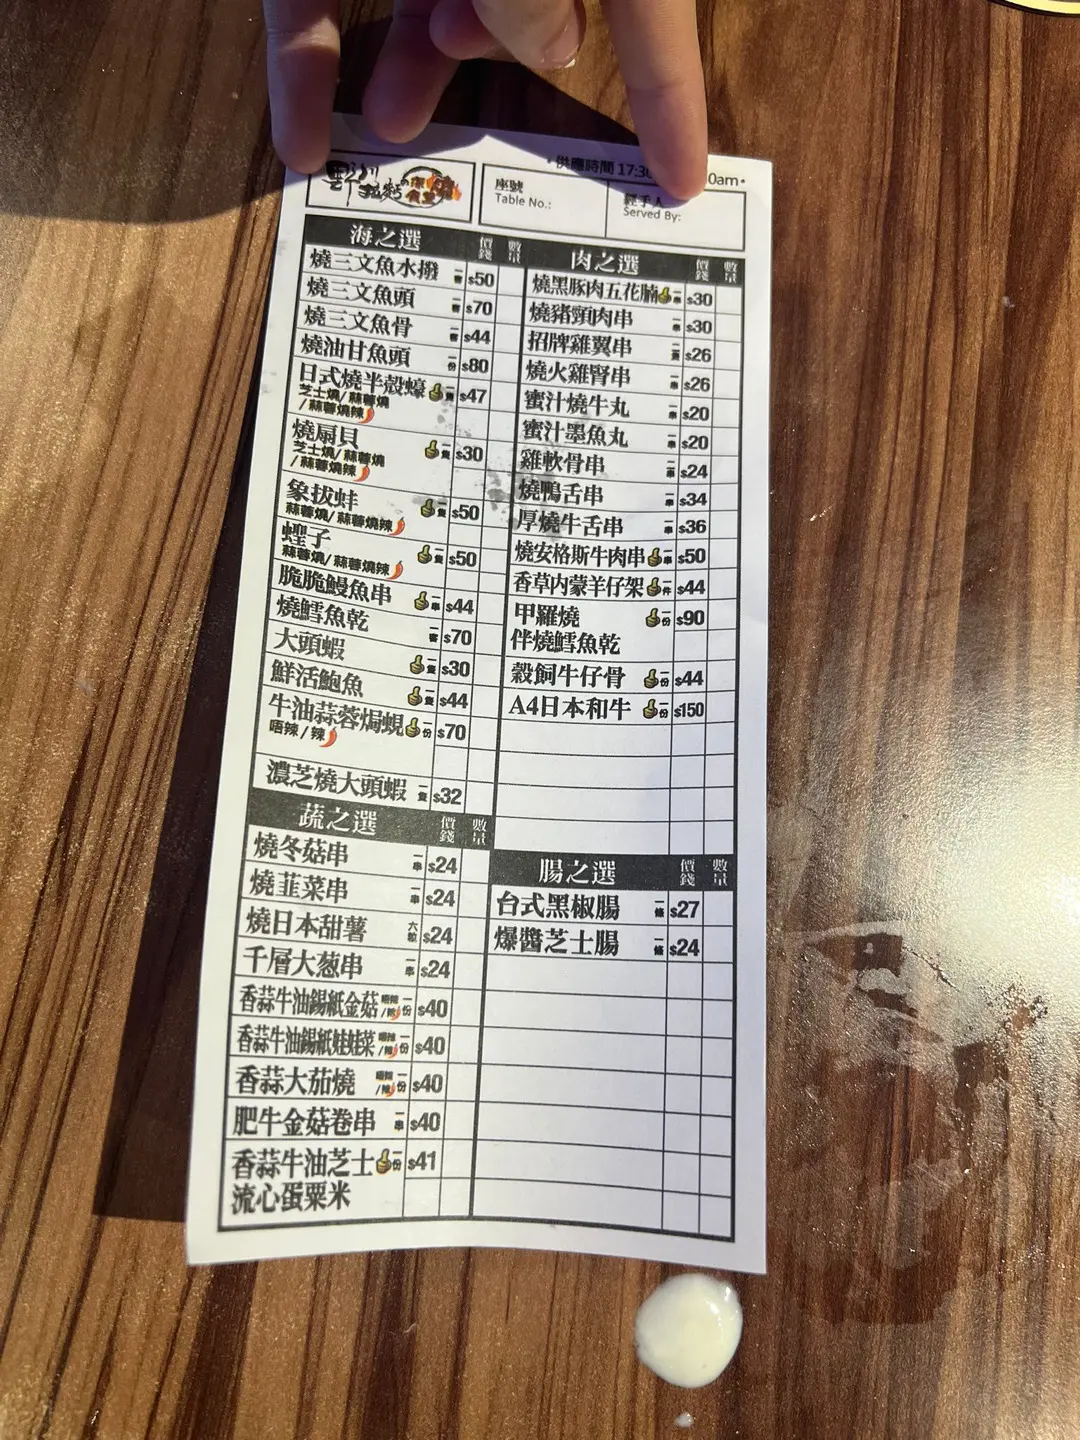 供應時間 17:30
0am
座號
Table No.:
經手人
Served By:
海之選 價錢 數量
燒三文魚水撥 一客 $50
燒三文魚頭 一客 $70
燒三文魚骨 一客 $44
燒油甘魚頭 一份 $80
日式燒半殼蠔 一隻 $47
芝士燒/蒜蓉燒
/蒜蓉燒辣
燒扇貝 一隻 $30
芝士燒/蒜蓉燒
/蒜蓉燒辣
象拔蚌 一隻 $50
蒜蓉燒/蒜蓉燒辣
蟶子 一隻 $50
蒜蓉燒/蒜蓉燒辣
脆脆鰻魚串 一串 $44
燒鱈魚乾 一客 $70
大頭蝦 一隻 $30
鮮活鮑魚 一隻 $44
牛油蒜蓉焗蜆 一份 $70
唔辣/辣
濃芝燒大頭蝦 一隻 $32
蔬之選 價錢 數量
燒冬菇串 一串 $24
燒韮菜串 一串 $24
燒日本甜薯 大粒 $24
千層大葱串 一串 $24
香蒜牛油錫紙金菇 唔辣/辣 一份 $40
香蒜牛油錫紙娃娃菜 唔辣/辣 一份 $40
香蒜大茄燒 唔辣/辣 一份 $40
肥牛金菇卷串 一串 $40
香蒜牛油芝士 一份 $41
流心蛋粟米
肉之選 價錢 數量
燒黑豚肉五花腩 一串 $30
燒豬頸肉串 一串 $30
招牌雞翼串 一隻 $26
燒火雞腎串 一串 $26
蜜汁燒牛丸 一串 $20
蜜汁墨魚丸 一串 $20
雞軟骨串 一串 $24
燒鴨舌串 一串 $34
厚燒牛舌串 一串 $36
燒安格斯牛肉串 一串 $50
香草內蒙羊仔架 一件 $44
甲羅燒 一份 $90
伴燒鱈魚乾
穀飼牛仔骨 一份 $44
A4日本和牛 一份 $150
腸之選 價錢 數量
台式黑椒腸 一條 $27
爆醬芝士腸 一條 $24